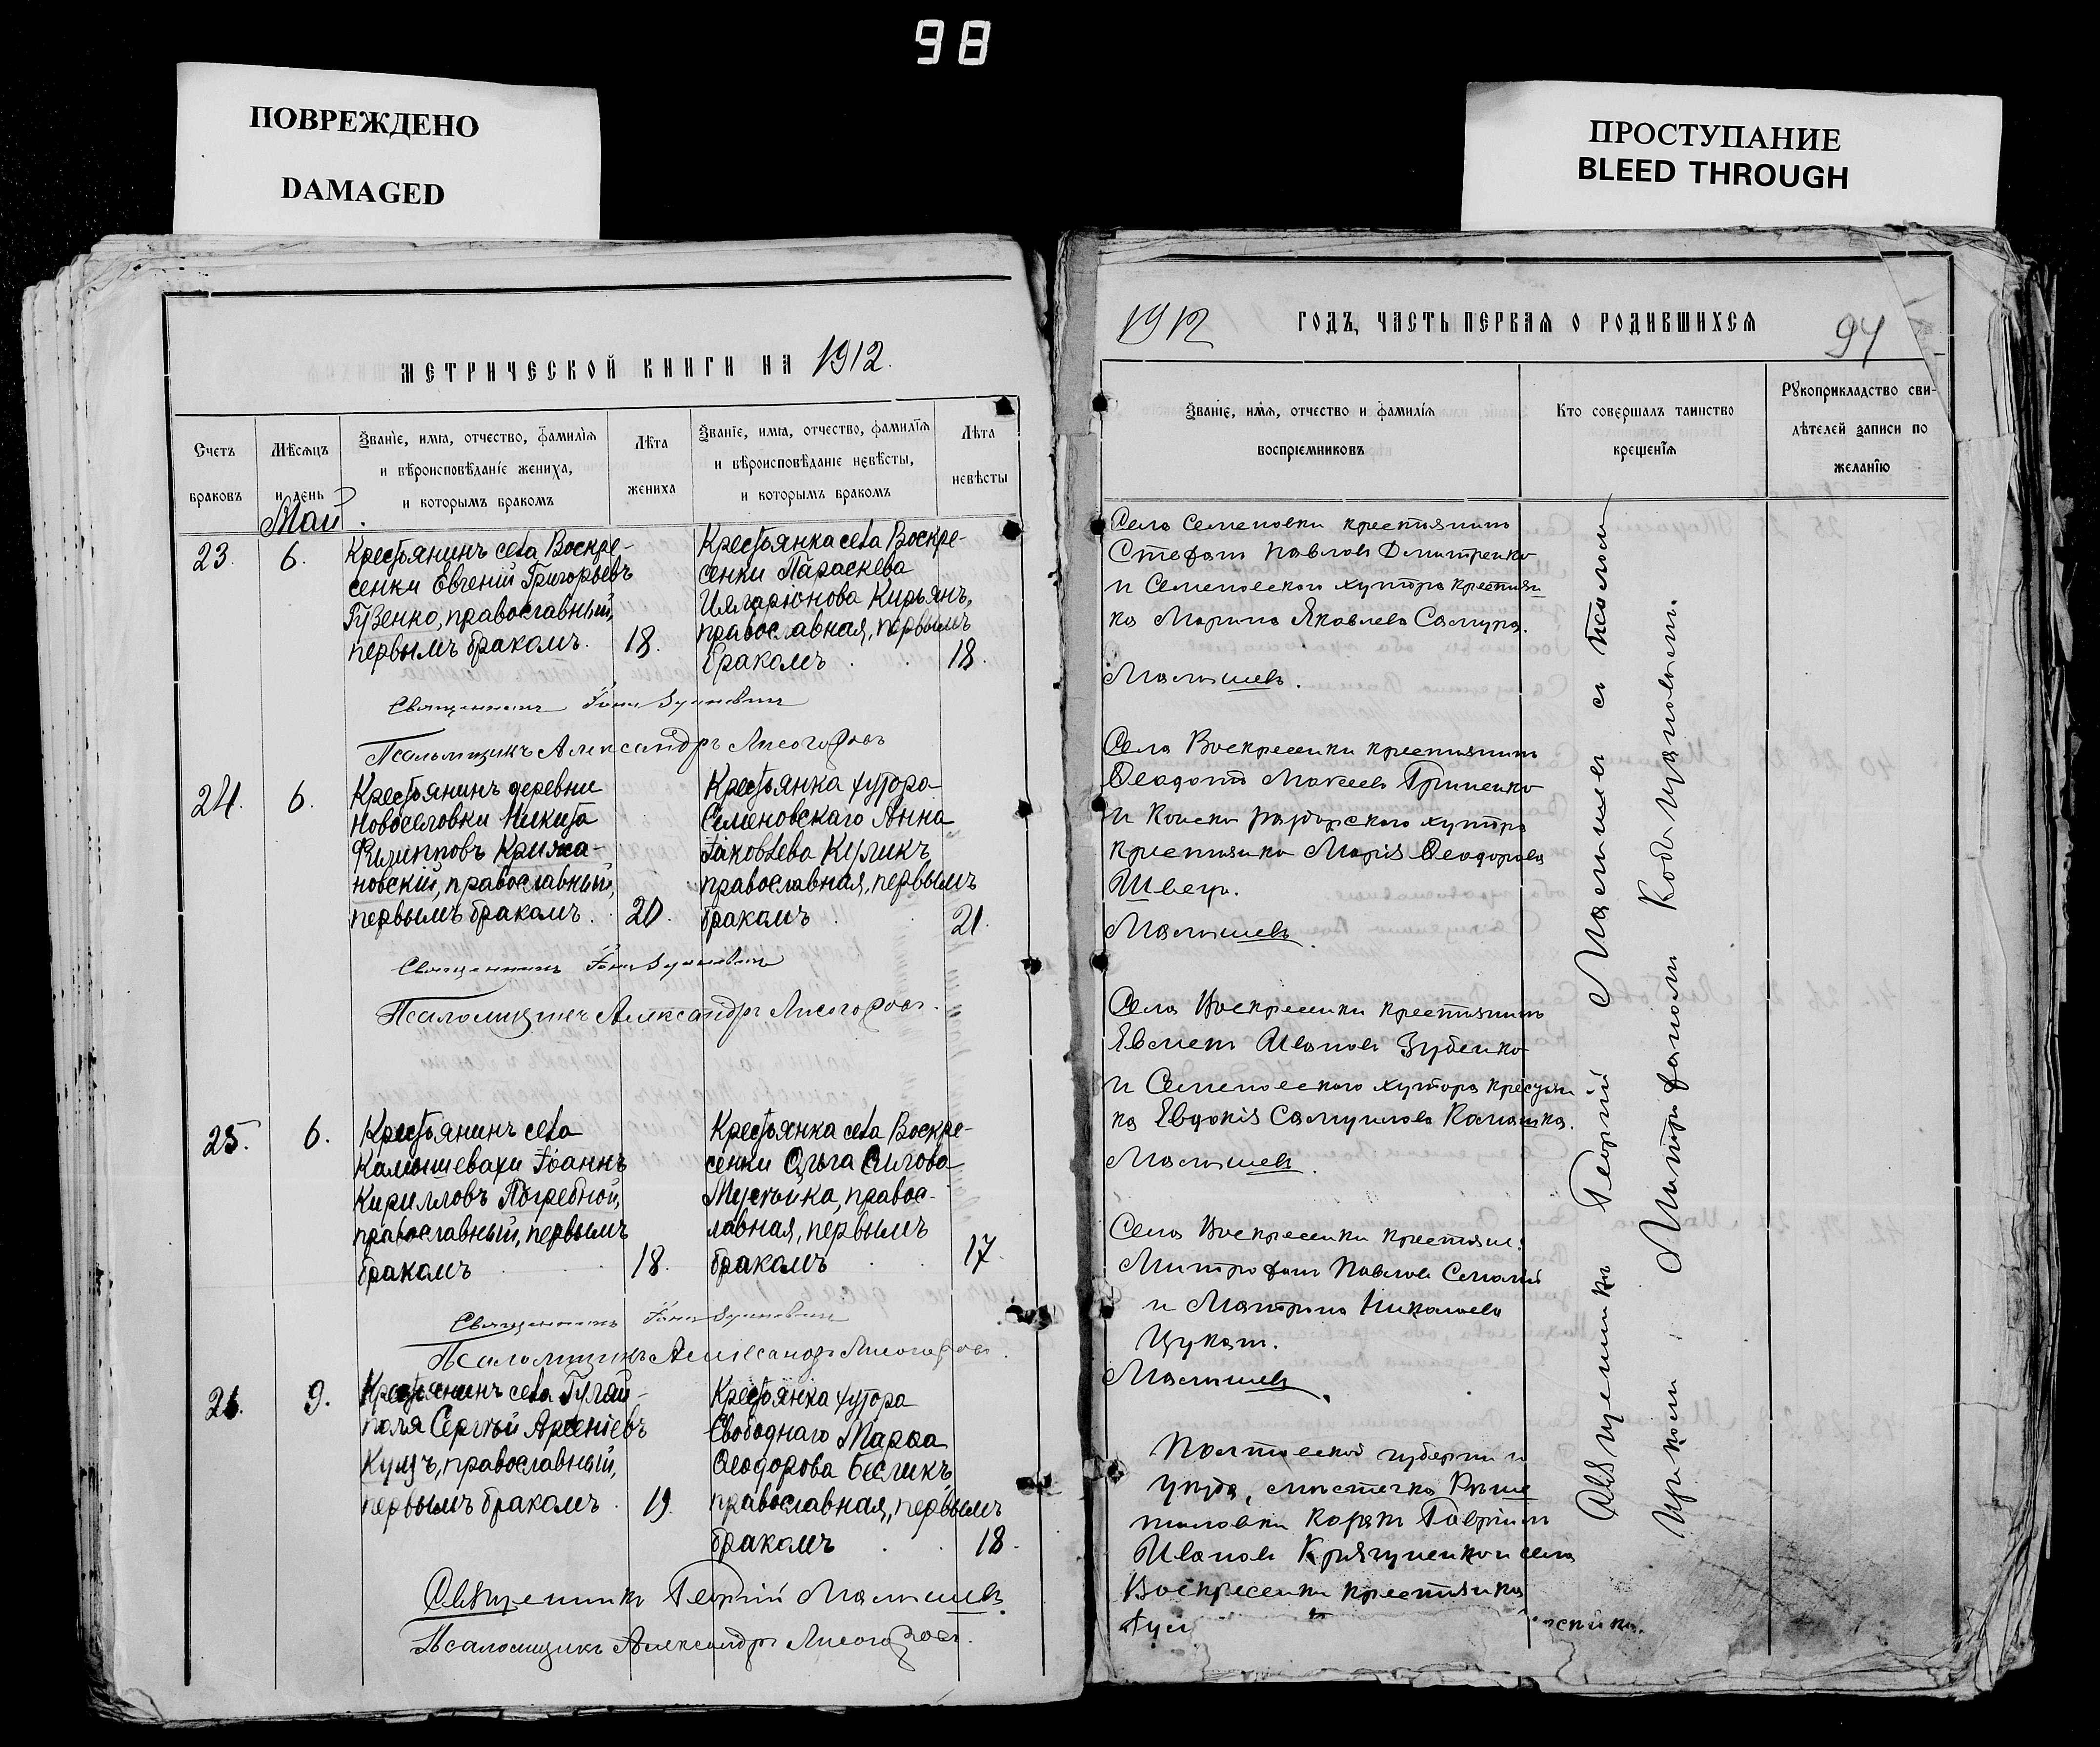 98
ПОВРЕЖДЕНО
DAMAGED
ПРОСТУПАНИЕ
BLEED THROUGH
МЕТРИЧЕСКОЙ КНИГИ НА 1912.
Счетъ браковъ
Мѣсяцъ и день
Званіе, имя, отчество, фамилія и вѣроисповѣданіе жениха, и которымъ бракомъ
Лѣта жениха
Званіе, имя, отчество, фамилія и вѣроисповѣданіе невѣсты, и которымъ бракомъ
Лѣта невѣсты
Май
23. 6.
Крестьянинъ села Воскре-
сенки Евгеній Григорьевъ
Гузенко, православный,
первымъ бракомъ. 18.
Крестьянка села Воскре-
сенки Параскева
Иларіонова Кирьянъ,
православная, первымъ
бракомъ 18.
Священникъ
Псаломщикъ Александръ Лисогоровъ
24. 6.
Крестьянинъ деревни
Новоселовки Никита
Филипповъ Крижа-
новскій, православный,
первымъ бракомъ. 20.
Крестьянка хутора
Семеновскаго Анна
Іаковлева Курикъ,
православная, первымъ
бракомъ 21.
Священникъ
Псаломщикъ Александръ Лисогоровъ.
25. 6.
Крестьянинъ села
Камышевахи Іоаннъ
Кирилловъ Погребной,
православный, первымъ
бракомъ 18.
Крестьянка села Воскре-
сенки Ольга Силова
православная, первымъ
бракомъ 17.
Священникъ
Псаломщикъ Александръ Лисогоровъ.
26. 9.
Крестьянинъ села Гуляй-
поля Сергѣй Арсеніевъ
православный,
первымъ бракомъ 19.
Крестьянка хутора
Свободнаго Марѳа
Ѳеодорова Бѣликъ,
православная, первымъ
бракомъ 18.
Священникъ Георгій Малышевъ.
Псаломщикъ Александръ Лисогоровъ.
1912 ГОДЪ, ЧАСТЬ ПЕРВАЯ О РОДИВШИХСЯ 94
Званіе, имя, отчество и фамилія воспріемниковъ
Кто совершалъ таинство крещенія
Рукоприкладство сви-
дѣтелей записи по
желанію
Села Семеновки крестьянинъ
Стефанъ Павловъ Дмитренко
и Семеновскаго хутора крестьян
ка Марина Яковлева Самура.
Малышевъ.
Села Воскресенки крестьянинъ
Ѳеодотъ Мокеевъ Гриненко
и хутора
крестьянка Марія Ѳеодорова
Швецъ.
Малышевъ.
Села Воскресенки крестьянинъ
Иванов Зубенко
и Семеновскаго хутора крестьян
ка Евдокія Самуилова
Малышевъ.
Села Воскресенки крестьяне:
Митрофанъ Павловъ
и Матрона Николаева
Цукат.
Малышевъ.
Полтавской губерніи и
уѣзда, мѣстечка Реше
тиловки козакъ Гавріилъ
Иванов и села
Воскресенки крестьянка
Священникъ Георгій Малышевъ съ псалом
щикомъ Митрофаномъ